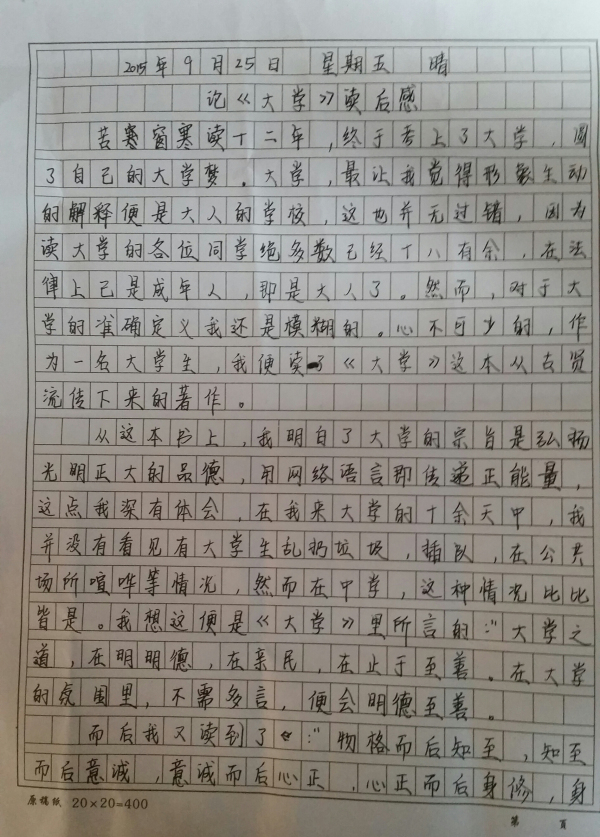 2015年9月25日 星期五 晴
论《大学》读后感
苦寒窗寒读十二年，终于考上了大学，圆
了自己的大学梦。大学，最让我觉得形象生动
的解释便是大人的学校，这也并无过错，因为
读大学的各位同学绝多数已经十八有余，在法
律上已是成年人，即是大人了。然而，对于大
学的准确定义我还是模糊的。心不可少的，作
为一名大学生，我便读了《大学》这本从古贤
流传下来的著作。
从这本书上，我明白了大学的宗旨是弘扬
光明正大的品德，用网络语言即传递正能量，
这点我深有体会，在我来大学的十余天中，我
并没有看见有大学生乱扔垃圾，插队，在公共
场所喧哗等情况，然而在中学，这种情况比比
皆是。我想这便是《大学》里所言的："大学之
道，在明明德，在亲民，在止于至善。在大学
的氛围里，不需多言，便会明德至善。
而后我又读到了："物格而后知至，知至
而后意诚，意诚而后心正，心正而后身修，身
原稿纸 20×20=400
第 页